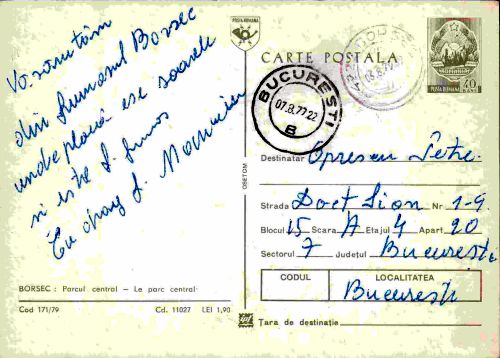 Vă salutăm
din frumosul Borsec
unde plouă ese soarele
si este f. frumos
Cu drag
BORSEC : Parcul central - Le parc central
Cod 171/79
Cd. 11027 LEI 1,90
POSTA ROMANA
CARTE POSTALA
POSTA ROMANA
40
BANI
BUCURESTI
07.8.79.22
8
OSETCM
Destinatar Oprescu Petre
Strada Doct Lion Nr 1-9
Blocul 15 Scara A Etajul 4 Apart 20
Sectorul 7 Judeţul Bucuresti
CODUL
LOCALITATEA
Bucuresti
Ţara de destinaţie